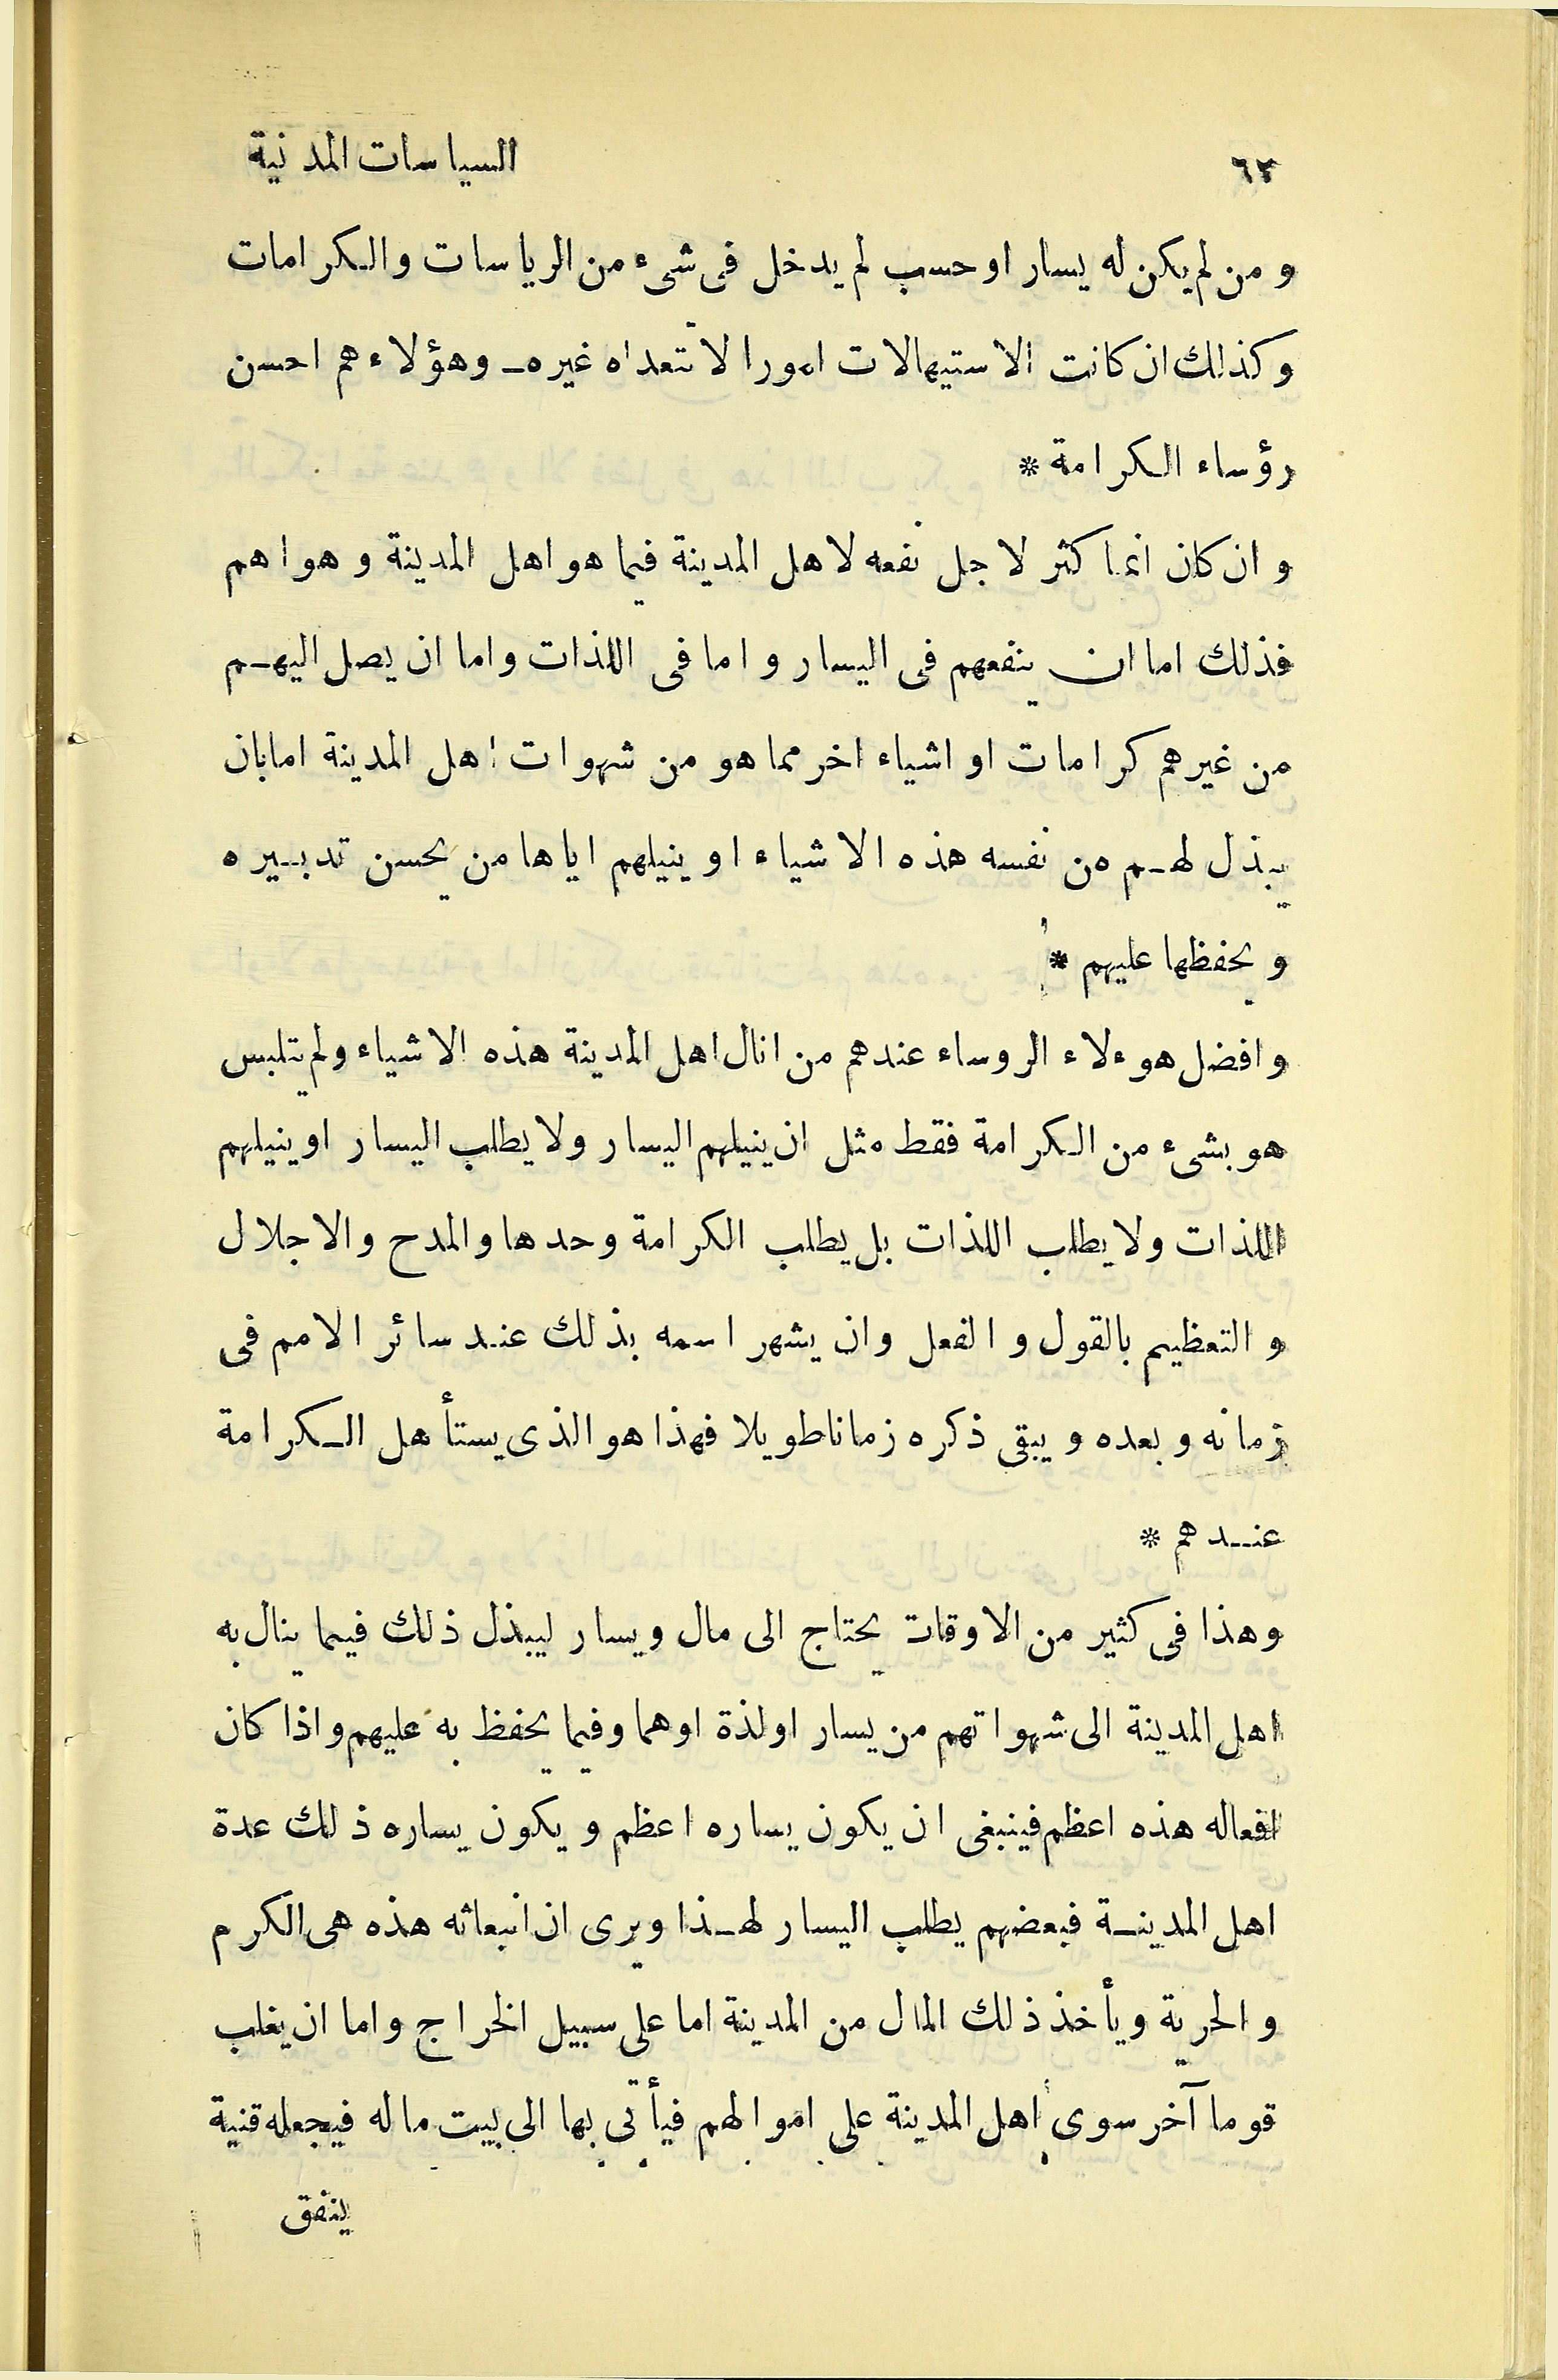 ٦٢ السياسات المدنية
و من لم يكن له يسار او حسب لم يدخل فى شىء من الرياسات والكرامات
وكذلك ان كانت الاستيهالات امورا لا تتعداه غيره ـ وهؤلاء هم احسن
رؤساء الكرامة *
و ان كان انما كثر لاجل نفعه لاهل المدينة فيما هو اهل المدينة و هواهم
فذلك اما ان ينفعهم فى اليسار و اما فى اللذات واما ان يصل اليهم
من غيرهم كرامات او اشياء اخر مما هو من شهوات اهل المدينة امابان
يبذل لهم من نفسه هذه الاشياء او ينيلهم اياها من يحسن تدبيره
و يحفظها عليهم *
و افضل هوءلاء الروساء عندهم من انال اهل المدينة هذه الاشياء ولم يتلبس
هو بشىء من الكرامة فقط مثل ان ينيلهم اليسار ولا يطلب اليسار او ينيلهم
اللذات ولا يطلب اللذات بل يطلب الكرامة وحدها والمدح والاجلال
و التعظيم بالقول و الفعل وان يشهر اسمه بذلك عند سائر الامم فى
زمانه و بعده و يبقى ذكره زمانا طويلا فهذا هو الذى يستأهل الكرامة
عندهم *
وهذا فى كثير من الاوقات يحتاج الى مال ويسار ليبذل ذلك فيما ينال به
اهل المدينة الى شهواتهم من يسار او لذة او هما وفيما يحفظ به عليهم و اذا كان
افعاله هذه اعظم فينبغى ان يكون يساره اعظم و يكون يساره ذلك عدة
اهل المدينة فبعضهم يطلب اليسار لهذا و يرى ان انبعاثه هذه هى الكرم
و الحرية و يأخذ ذلك المال من المدينة اما على سبيل الخراج و اما ان يغلب
قوما آخر سوى اهل المدينة على اموالهم فيأتى بها الى بيت ماله فيجعله قنية
ينفق